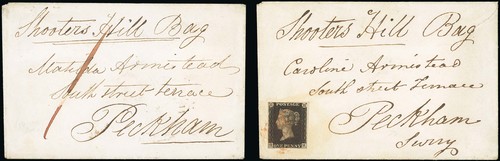 Shooters Hill Bag
Matilda Armistead
South street terrace
Peckham
Shooters Hill Bag
Caroline Armistead
South street Terrace
Peckham
Surry
POSTAGE
ONE PENNY